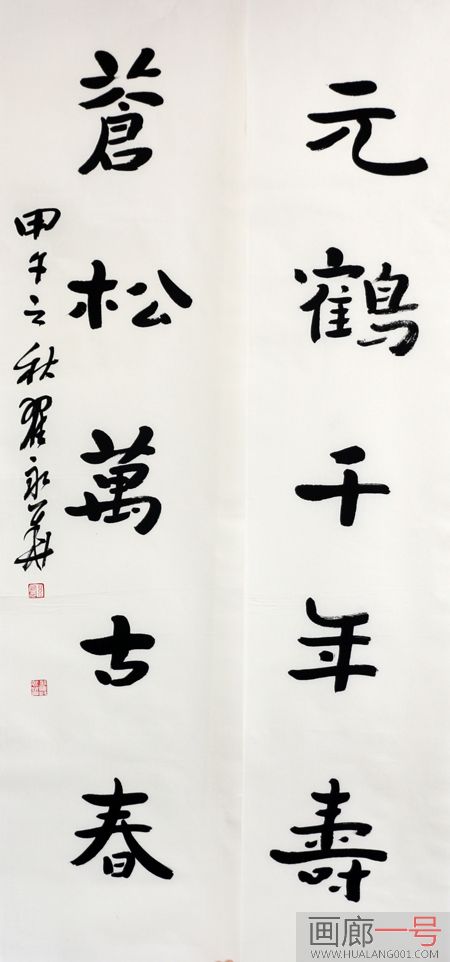 元鶴千年壽
蒼松萬古春
甲午之秋翟永華
画廊一号
WWW.HUALANG001.COM